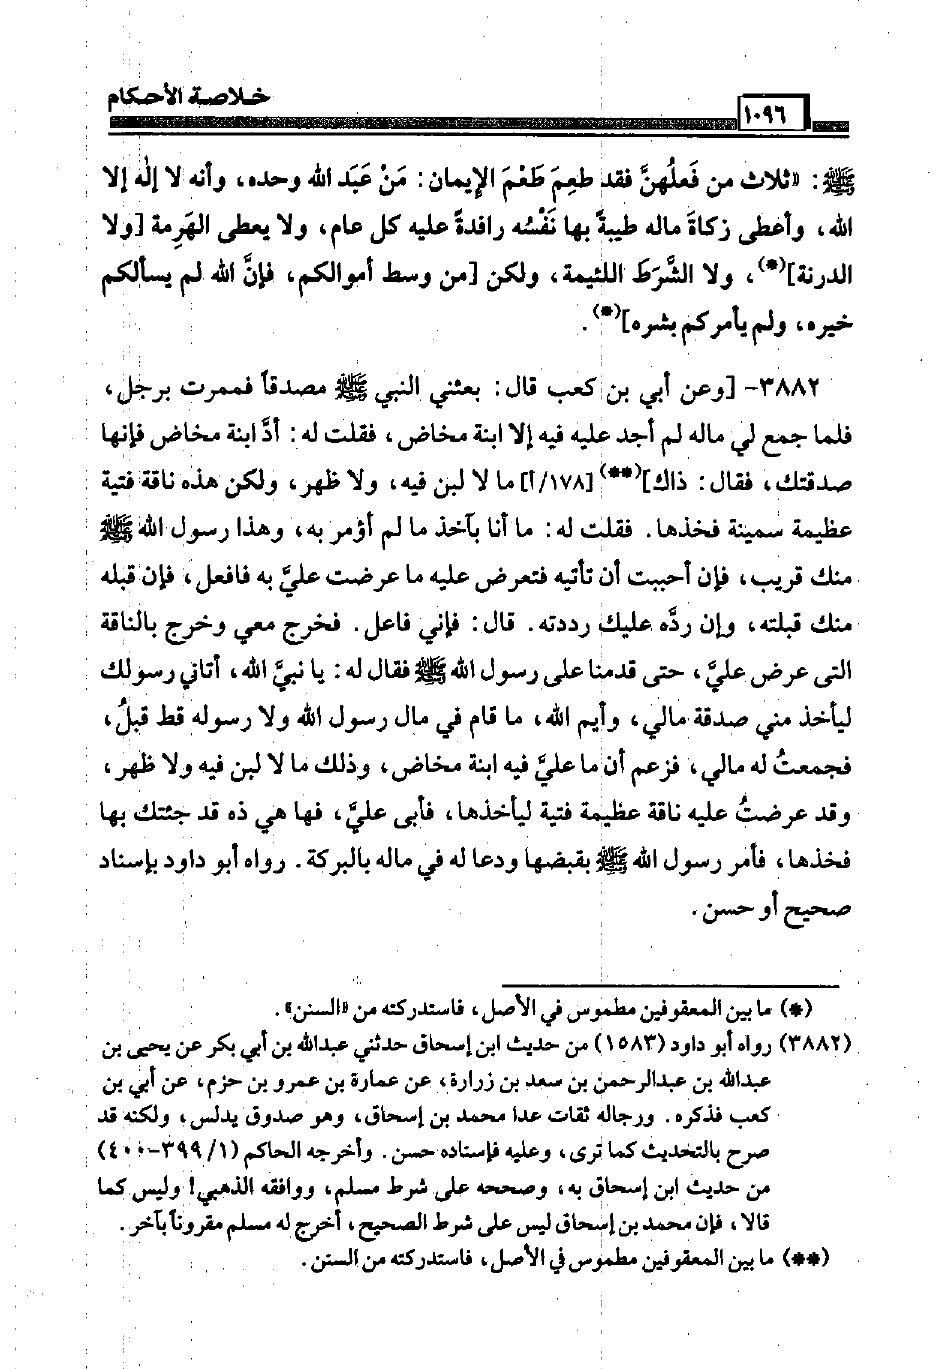 خلاصة الأحكام
١٠٩٦
ﷺ: «ثلاث من فَعلُهنَّ فقد طعِمَ طَعْمَ الإيمان: مَنْ عَبَد الله وحده، وأنه لا إلٰه إلا
الله، وأعطى زكاةَ ماله طيبةً بها نَفْسُه رافدةً عليه كل عام، ولا يعطى الهَرِمة [ولا
الدرنة](*)، ولا الشَّرَطَ اللئيمة، ولكن [من وسط أموالكم، فإنَّ الله لم يسألكم
خيره، ولم يأمركم بشره](*).
٣٨٨٢- [وعن أبي بن كعب قال: بعثني النبي ﷺ مصدقاً فممرت برجل،
فلما جمع لي ماله لم أجد عليه فيه إلا ابنة مخاض، فقلت له: أدَّ ابنة مخاض فإنها
صدقتك، فقال: ذاك](**) [١٧٨/أ] ما لا لبن فيه، ولا ظهر، ولكن هذه ناقة فتية
عظيمة سمينة فخذها. فقلت له: ما أنا بآخذ ما لم أؤمر به، وهذا رسول الله ﷺ
منك قريب، فإن أحببت أن تأتيه فتعرض عليه ما عرضت عليَّ به فافعل، فإن قبله
منك قبلته، وإن ردَّه عليك رددته. قال: فإني فاعل. فخرج معي وخرج بالناقة
التى عرض عليَّ، حتى قدمنا على رسول الله ﷺ فقال له: يا نبيَّ الله، أتاني رسولك
ليأخذ مني صدقة مالي، وأيم الله، ما قام في مال رسول الله ولا رسوله قط قبلُ،
فجمعتُ له مالي، فزعم أن ما عليَّ فيه ابنة مخاض، وذلك ما لا لبن فيه ولا ظهر،
وقد عرضتُ عليه ناقة عظيمة فتية ليأخذها، فأبى عليَّ، فها هي ذه قد جئتك بها
فخذها، فأمر رسول الله ﷺ بقبضها ودعا له في ماله بالبركة. رواه أبو داود بإسناد
صحيح أو حسن.
(*) ما بين المعقوفين مطموس في الأصل، فاستدركته من «السنن».
(٣٨٨٢) رواه أبو داود (١٥٨٣) من حديث ابن إسحاق حدثني عبدالله بن أبي بكر عن يحيى بن
عبدالله بن عبدالرحمن بن سعد بن زرارة، عن عمارة بن عمرو بن حزم، عن أبي بن
كعب فذكره. ورجاله ثقات عدا محمد بن إسحاق، وهو صدوق يدلس، ولكنه قد
صرح بالتحديث كما ترى، وعليه فإسناده حسن. وأخرجه الحاكم (١/ ٣٩٩-٤٠٠)
من حديث ابن إسحاق به، وصححه على شرط مسلم، ووافقه الذهبي! وليس كما
قالا، فإن محمد بن إسحاق ليس على شرط الصحيح، أخرج له مسلم مقروناً بآخر.
(**) ما بين المعقوفين مطموس في الأصل، فاستدركته من السنن.